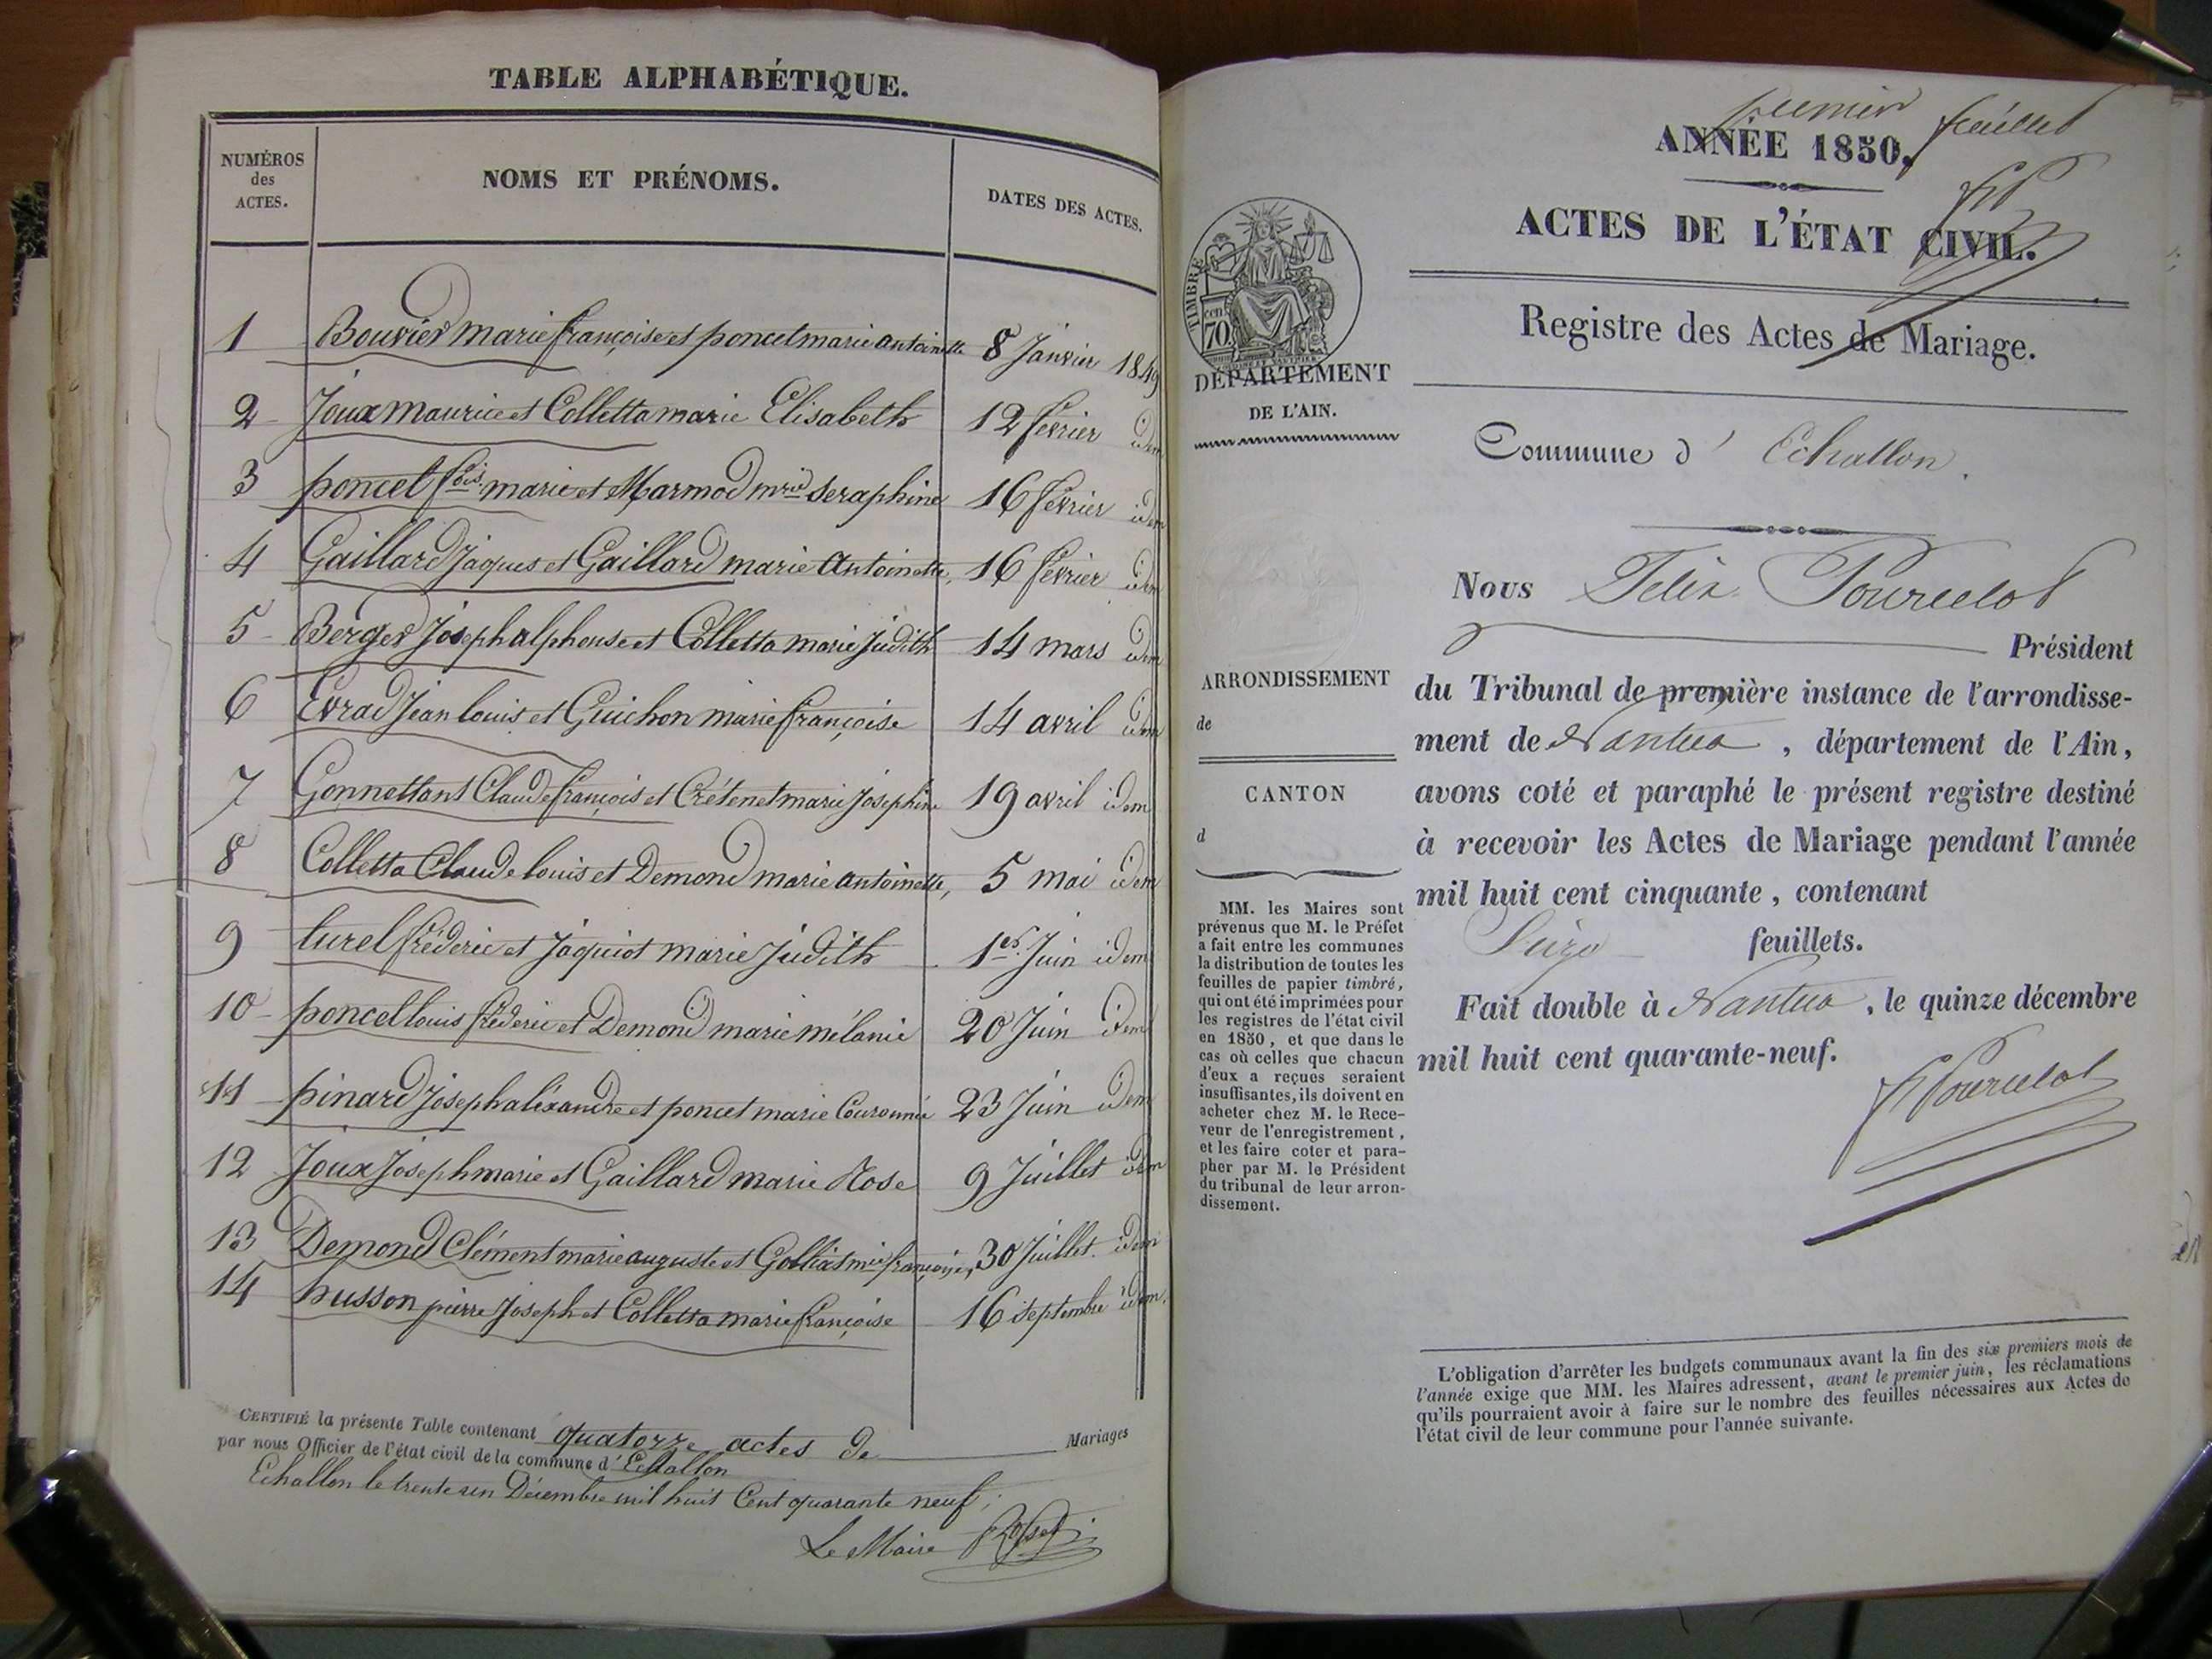 TABLE ALPHABÉTIQUE.
NUMÉROS
des
ACTES.
NOMS ET PRÉNOMS.
DATES DES ACTES.
1 Bouvier marie françoise et poncet marie antoinette 8 Janvier 1849
2 Joux maurice et Colletta marie Elisabeth 12 février idem
3 poncet fois marie et Marmod mrie seraphine 16 février idem
4 Gaillard Jaques et Gaillard marie Antoinette, 16 février idem
5 Berger Joseph alphonse et Colletta marie Judith 14 mars idem
6 Evrad Jean louis et Guichon marie françoise 14 avril idem
7 Gonnettant Claude françois et Crétenet marie Josephine 19 avril idem
8 Colletta Claude louis et Demond marie antoinette, 5 mai idem
9 turel fréderic et Jaquiot marie Judith 1er Juin idem
10 poncet louis fréderic et Demond marie mélanie 20 Juin idem
11 pinard Joseph alixandre et poncet marie Couronnée 23 Juin idem
12 Joux Joseph marie et Gaillard marie Rose 9 Juillet idem
13 Demond Clément marie auguste et mie françoise, 30 Juillet idem
14 husson pierre Joseph et Colletta marie françoise 16 septembre idem.
CERTIFIÉ la présente Table contenant quatorze actes de Mariages
par nous Officier de l'état civil de la commune d' Echallon
Echallon le trente un Décembre mil huit Cent quarante neuf,
Le Maire
premier feuillet
ANNÉE 1850.
FP
ACTES DE L'ÉTAT CIVIL.
Registre des Actes de Mariage.
TIMBRE
cen
70.
DÉPARTEMENT
DE L'AIN.
Commune d' Echallon.
Nous Felix Pourcelot
Président
du Tribunal de première instance de l'arrondisse-
ment de Nantua, département de l'Ain,
avons coté et paraphé le présent registre destiné
à recevoir les Actes de Mariage pendant l'année
mil huit cent cinquante, contenant
feuillets.
Fait double à Nantua, le quinze décembre
mil huit cent quarante-neuf.
F Pourcelot
ARRONDISSEMENT
de
CANTON
d
MM. les Maires sont
prévenus que M. le Préfet
a fait entre les communes
la distribution de toutes les
feuilles de papier timbré,
qui ont été imprimées pour
les registres de l'état civil
en 1850, et que dans le
cas où celles que chacun
d'eux a reçues seraient
insuffisantes, ils doivent en
acheter chez M. le Rece-
veur de l'enregistrement,
et les faire coter et para-
pher par M. le Président
du tribunal de leur arron-
dissement.
L'obligation d'arrêter les budgets communaux avant la fin des six premiers mois de
l'année exige que MM. les Maires adressent, avant le premier juin, les réclamations
qu'ils pourraient avoir à faire sur le nombre des feuilles nécessaires aux Actes de
l'état civil de leur commune pour l'année suivante.